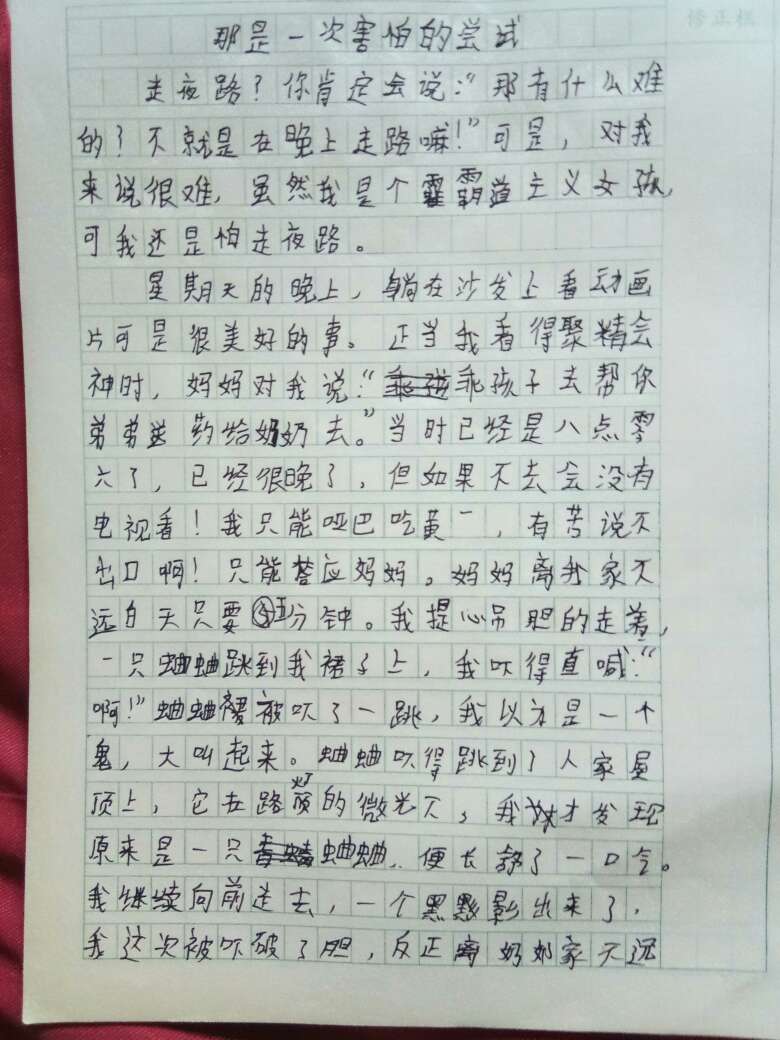 修正栏
那是一次害怕的尝试
走夜路？你肯定会说：“那有什么难
的？不就是在晚上走路嘛！”可是，对我
来说很难，虽然我是个霸道主义女孩，
可我还是怕走夜路。
星期天的晚上，躺在沙发上看动画
片可是很美好的事。正当我看得聚精会
神时，妈妈对我说：“乖孩子去帮你
弟弟送药给奶奶去。”当时已经是八点零
六了，已经很晚了，但如果不去会没有
电视看！我只能哑巴吃黄一，有苦说不
出口啊！只能答应妈妈。妈妈离我家不
远白天只要五分钟。我提心吊胆的走着，
一只蛐蛐跳到我裙子上，我吓得直喊：“
啊！”蛐蛐被吓了一跳，我以为是一个
鬼，大叫起来。蛐蛐吓得跳到了人家屋
顶上，它在路灯的微光下，我才发现
原来是一只蛐蛐，便长舒了一口气。
我继续向前走去，一个黑影出来了，
我这次被吓破了胆，反正离奶奶家不远